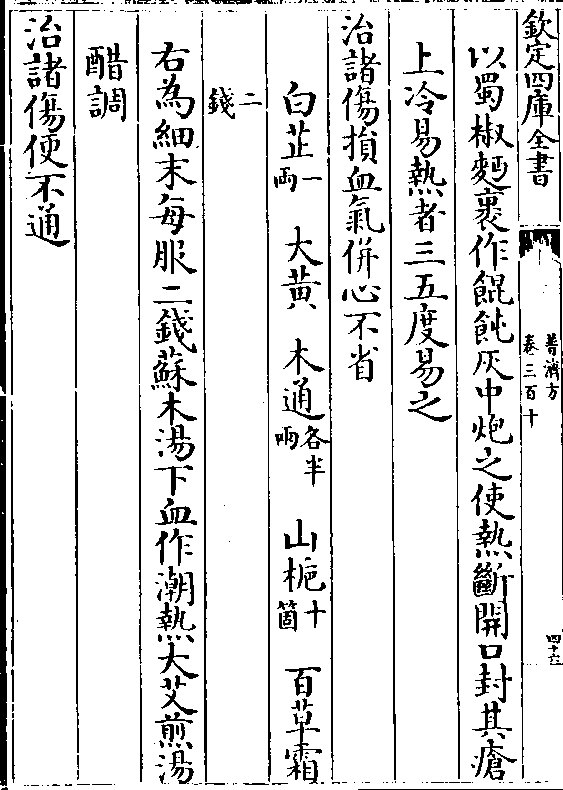 欽定四庫全書
普濟方
卷三百十
四十六
以蜀椒麪裹作餛飩灰中炮之使熱斷開口封其瘡
上冷易熱者三五度易之
治諸傷損血氣併心不省
白芷一兩 大黃 木通各半兩 山梔十箇 百草霜
二錢
右為細末每服二錢蘇木湯下血作潮熱大艾煎湯
醋調
治諸傷便不通